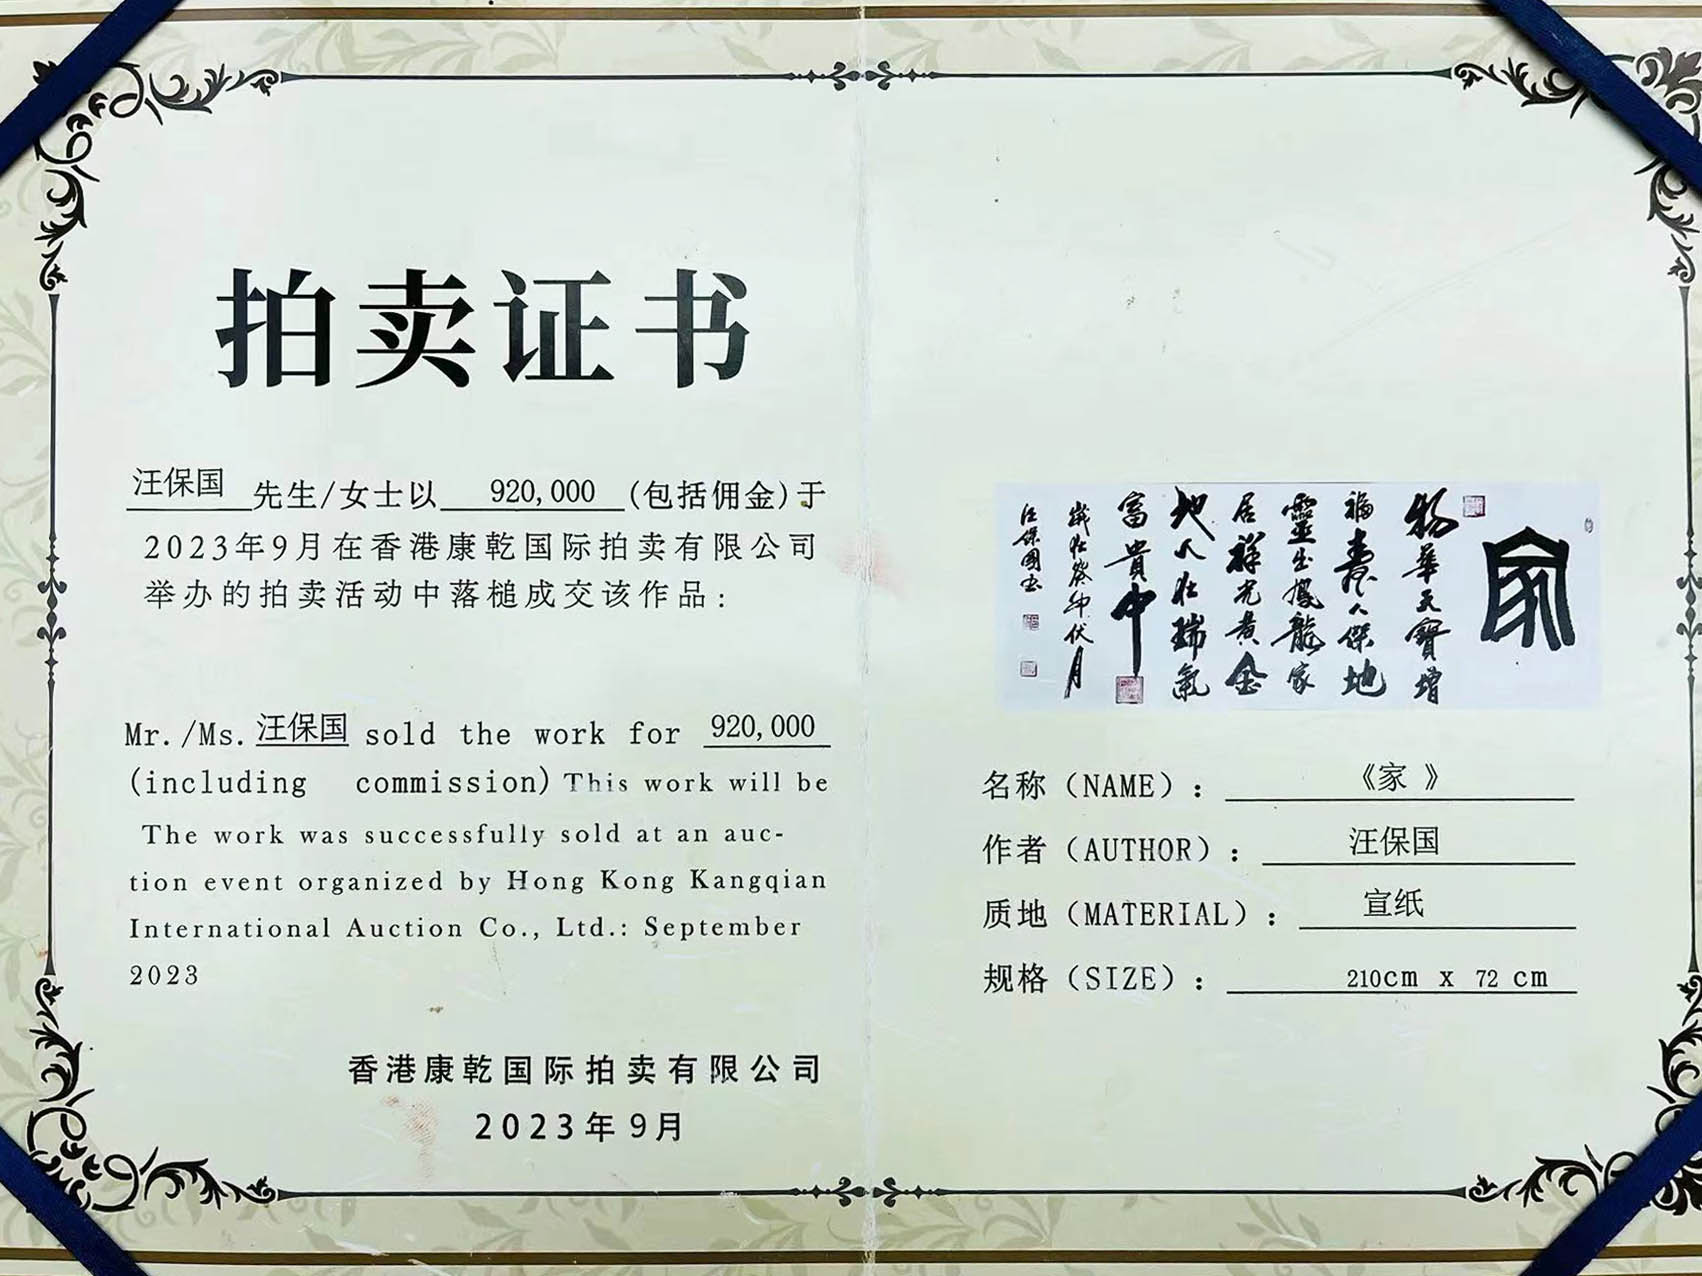 拍卖证书
汪保国 先生/女士以 920,000 (包括佣金)于
2023年9月在香港康乾国际拍卖有限公司
举办的拍卖活动中落槌成交该作品:
Mr./Ms. 汪保国 sold the work for 920,000
(including commission) This work will be
The work was successfully sold at an auc-
tion event organized by Hong Kong Kangqian
International Auction Co., Ltd.: September
2023
香港康乾国际拍卖有限公司
2023年9月
家
物華天寶增
福壽人傑地
靈出鳳龍家
居祥光黄金
地人壮瑞氣
富貴中
歲在癸卯伏月
汪保國书
名称（NAME）: 《家 》
作者（AUTHOR）: 汪保国
质地（MATERIAL）: 宣纸
规格（SIZE）: 210cm x 72 cm